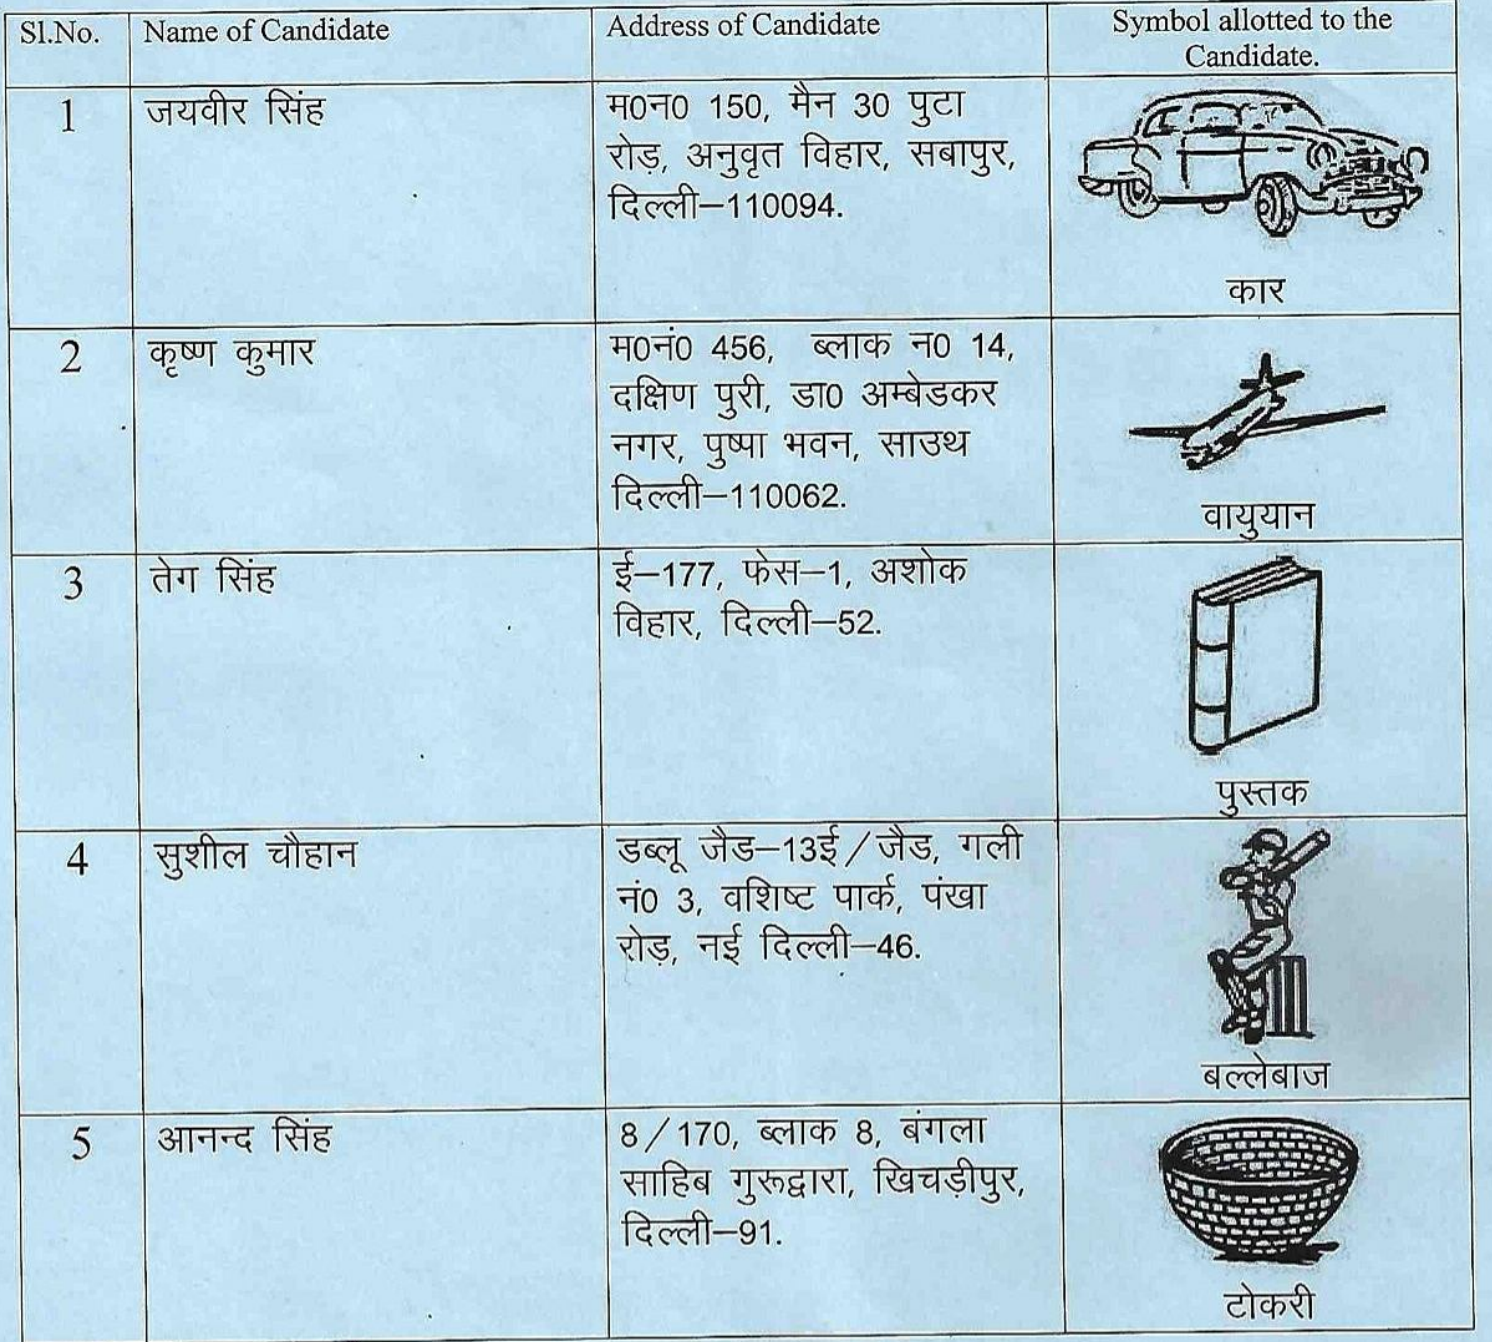 Sl.No. Name of Candidate Address of Candidate Symbol allotted to the
Candidate.
1 जयवीर सिंह म0न0 150, मैन 30 पुटा
रोड़, अनुवृत विहार, सबापुर,
दिल्ली–110094.
कार
2 कृष्ण कुमार म0नं0 456, ब्लाक न0 14,
दक्षिण पुरी, डा0 अम्बेडकर
नगर, पुष्पा भवन, साउथ
दिल्ली–110062.
वायुयान
3 तेग सिंह ई–177, फेस–1, अशोक
विहार, दिल्ली–52.
पुस्तक
4 सुशील चौहान डब्लू जैड–13ई/जैड, गली
नं0 3, वशिष्ट पार्क, पंखा
रोड़, नई दिल्ली–46.
बल्लेबाज
5 आनन्द सिंह 8/170, ब्लाक 8, बंगला
साहिब गुरूद्वारा, खिचड़ीपुर,
दिल्ली–91.
टोकरी